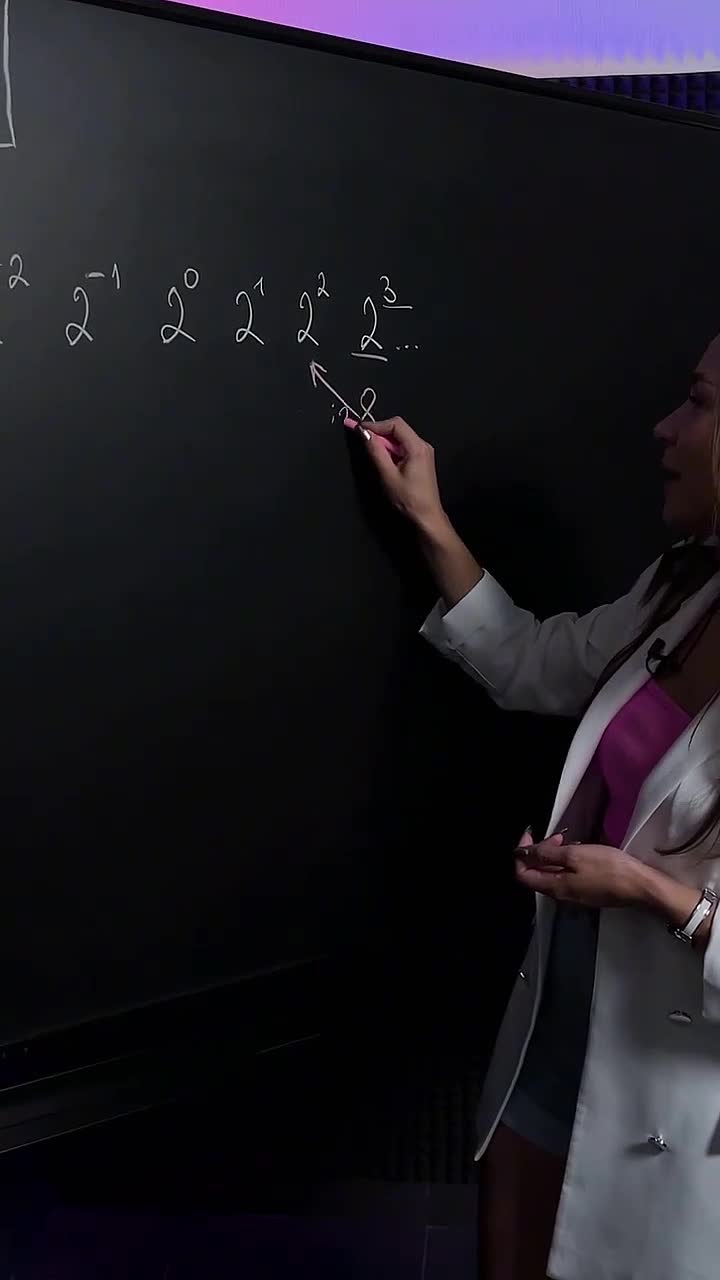 -2 2⁻¹ 2⁰ 2¹ 2² 2³ ...
:2 8